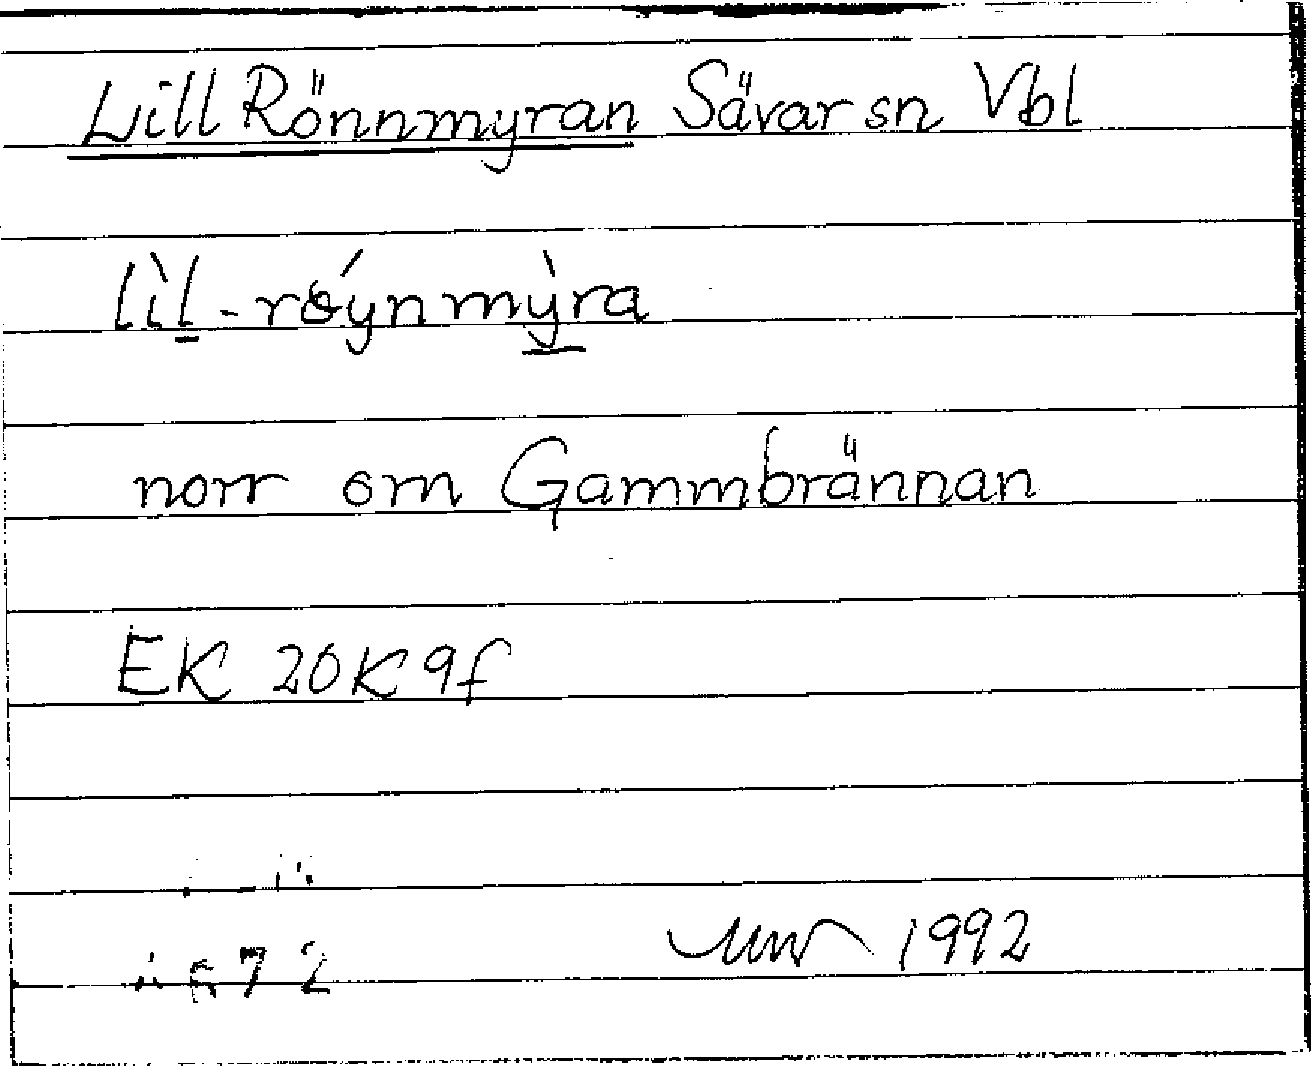 Lill Rönnmyran Sävar sn Vbl
lìl-rɵ́ynmỳra
norr om Gammbrännan
EK 20K9f
1992